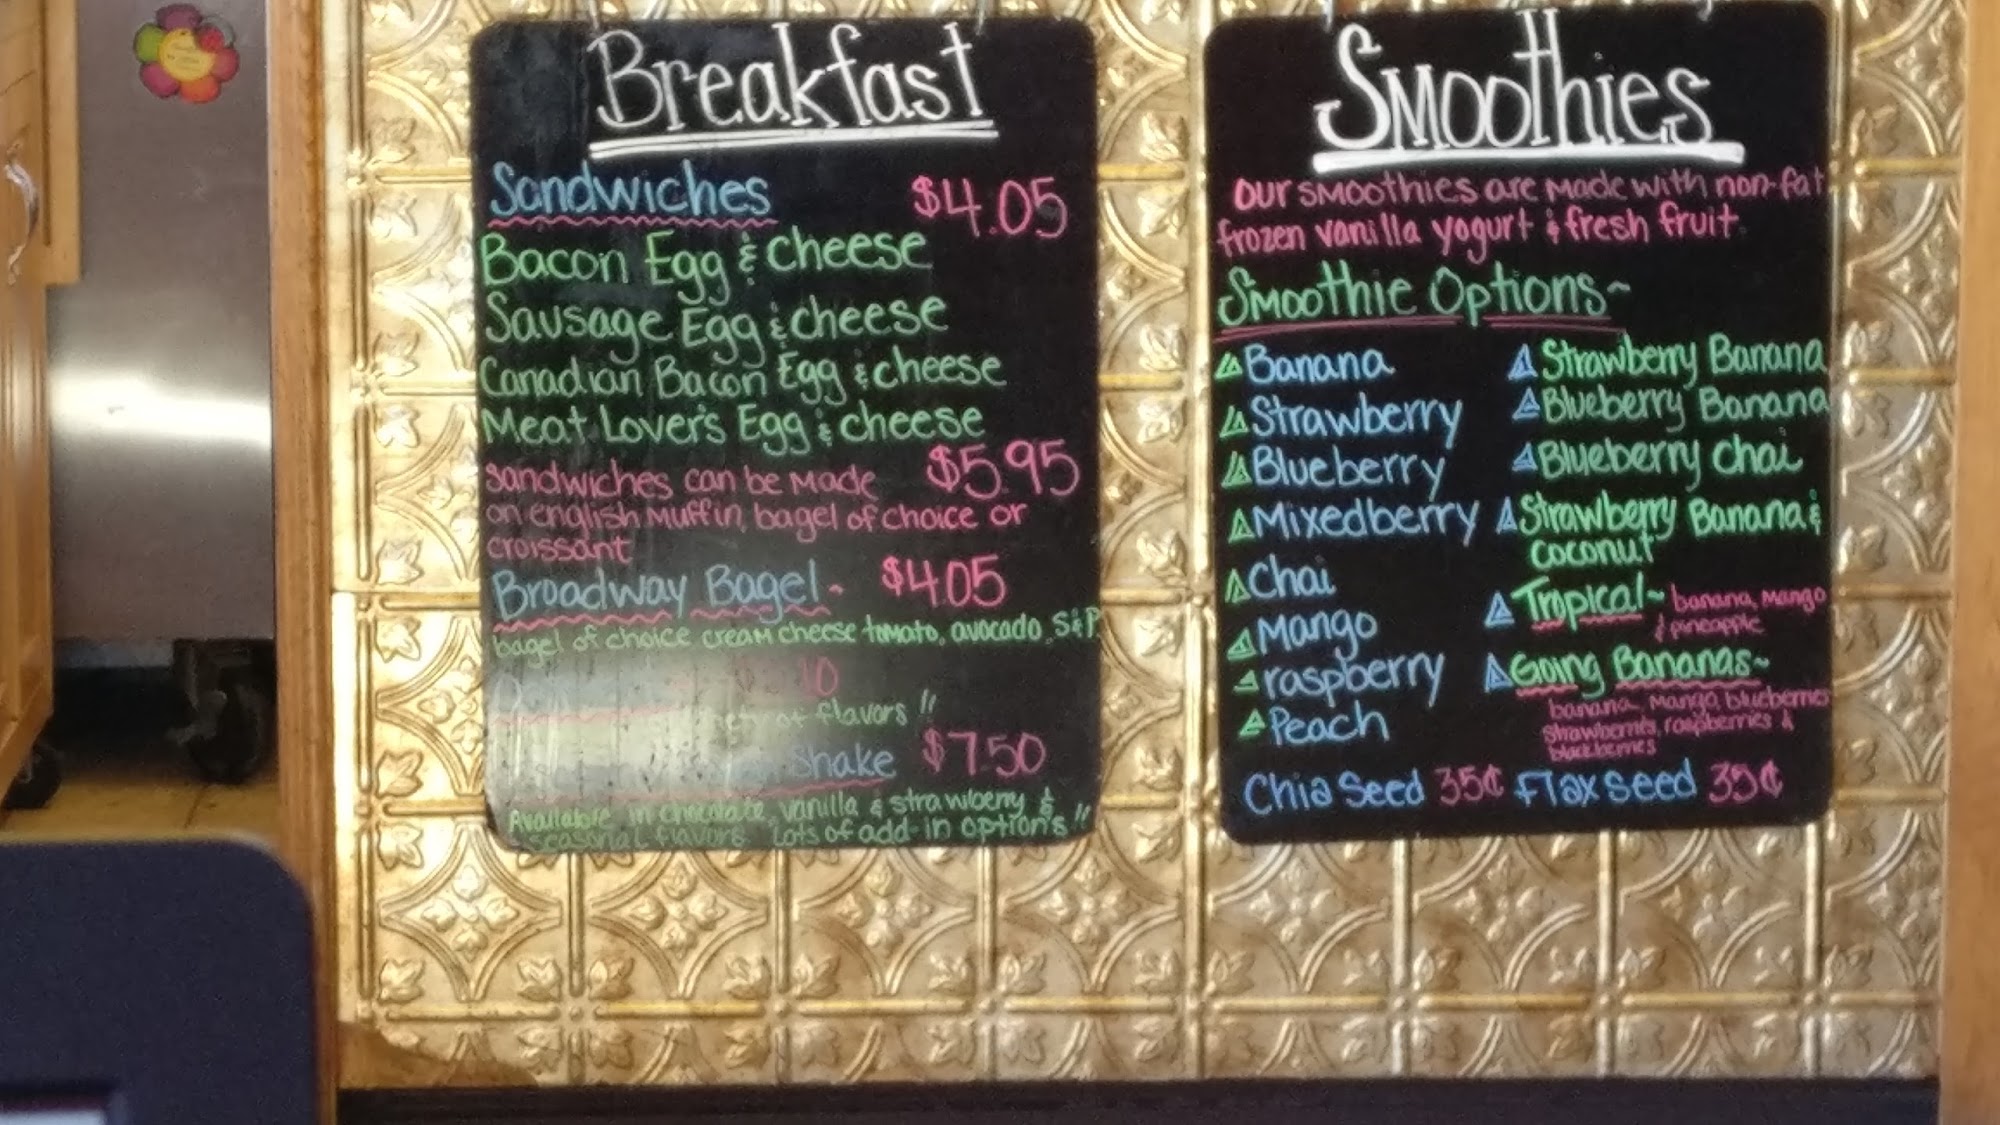 Breakfast
Sandwiches $4.05
Bacon Egg & cheese
Sausage Egg & cheese
Canadian Bacon Egg & cheese
Meat Lover's Egg & cheese
$5.95
Sandwiches can be made
on english muffin, bagel of choice or
croissant
Broadway Bagel - $4.05
bagel of choice cream cheese tomato, avocado, S&P
flavors!!
Shake $7.50
Available in chocolate, vanilla & strawberry &
seasonal flavors. Lots of add-in option's!!
Smoothies
Our smoothies are made with non-fat
frozen vanilla yogurt & fresh fruit.
Smoothie Options~
Banana
Strawberry
Blueberry
Mixedberry
Chai
Mango
raspberry
Peach
Strawberry Banana
Blueberry Banana
Blueberry Chai
Strawberry Banana &
coconut
Tropical~ banana, mango
& pineapple
Going Bananas~
banana, mango, blueberries
strawberries, raspberries &
blackberries
Chia Seed 35¢ Flax seed 35¢